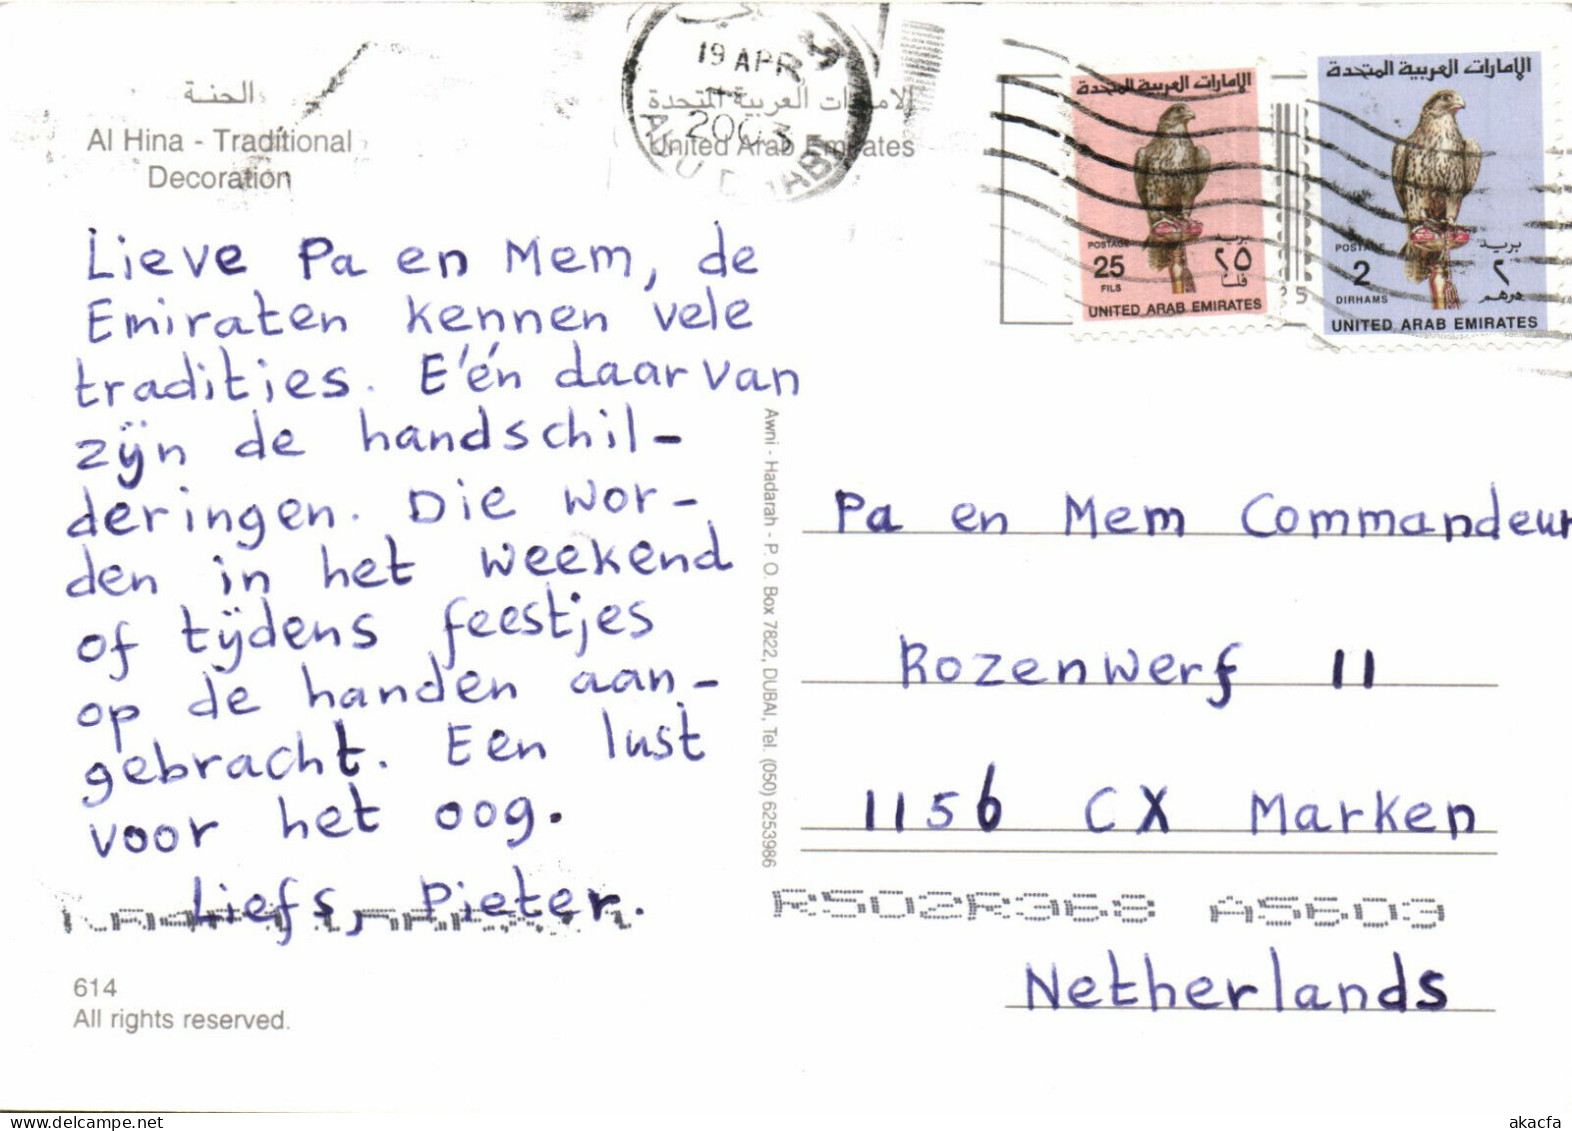 الحنة
Al Hina - Traditional
Decoration
19 APR
2003
الامارات العربية المتحدة
United Arab Emirates
الإمارات العربية المتحدة
POSTAGE
بريد
25
٢٥
FILS
فلس
UNITED ARAB EMIRATES
الإمارات العربية المتحدة
POSTAGE
بريد
2
٢
DIRHAMS
درهم
UNITED ARAB EMIRATES
Lieve Pa en Mem, de
Emiraten kennen vele
tradities. Eén daarvan
zijn de handschil-
deringen. Die wor-
den in het weekend
of tijdens feestjes
op de handen aan-
gebracht. Een lust
voor het oog.
Liefs, Pieter.
Awni - Hadarah - P. O. Box 7822, DUBAI, Tel. (050) 6253986
Pa en Mem Commandeur
Rozenwerf 11
1156 CX Marken
R502R368 A5603
Netherlands
614
All rights reserved.
akacfa